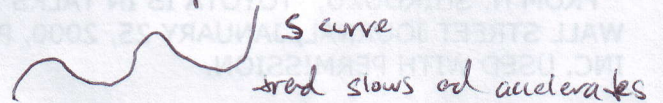 FROM N. SHIROUZU, "TOYOTA IS IN TALKS
S curve
WALL STREET JOURNAL, JANUARY 25, 2000, P
INC. USED WITH PERMISSION.
tred slows ad accelerates